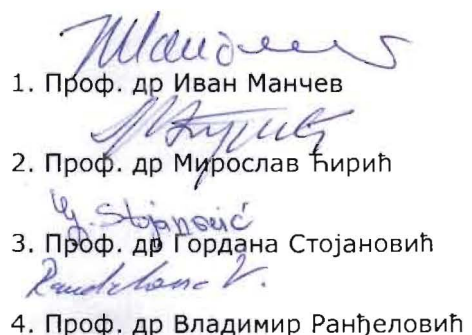 1. Проф. др Иван Манчев
2. Проф. др Мирослав Ћирић
Stojanović
3. Проф. др Гордана Стојановић
4. Проф. др Владимир Ранђеловић